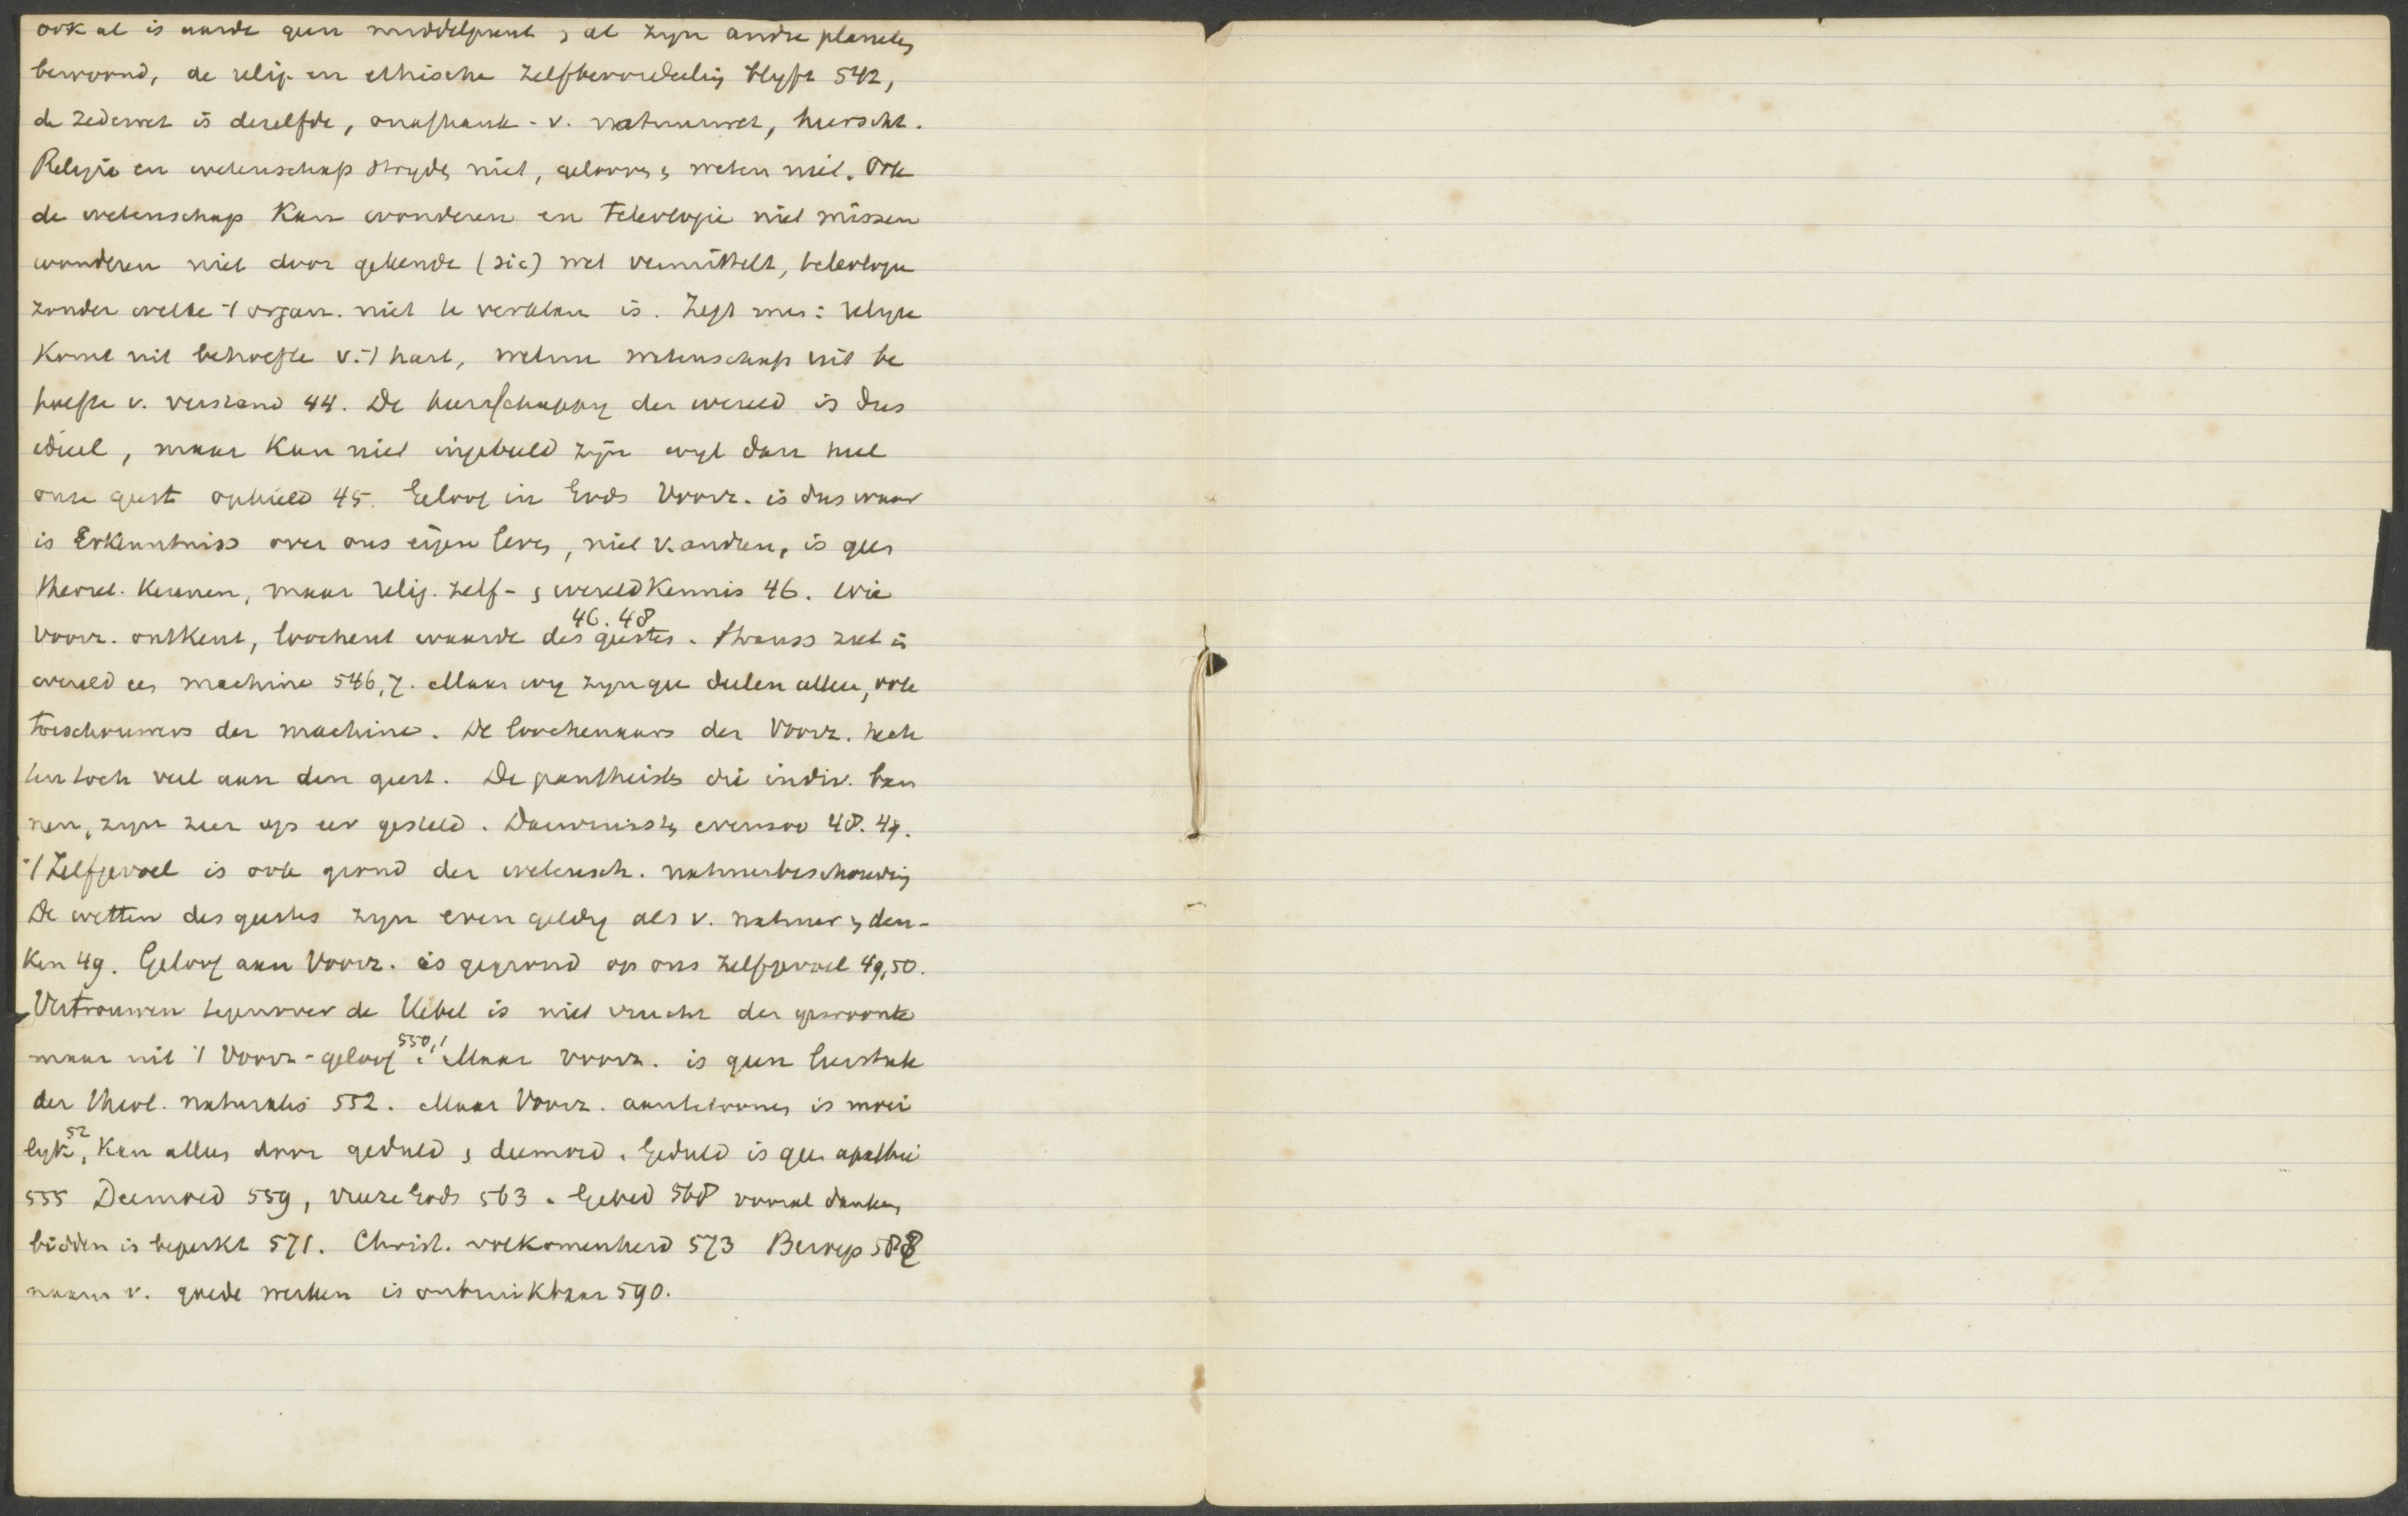 ook al is aarde geen middelpunt, al zyn andre planeten
bewoond, de relig. en ethische zelfbeoordeeling blyft 542,
de zedewet is deselfde, onafhank. v. natuurwet, heerscht.
Religie en wetenschap stryden niet, gelooven & weten niet. Ook
de wetenschap kan wonderen en teleologie niet missen
wonderen niet door gekende (sic) wet vermittelt, teleologie
zonder welke 't organ. niet te verklaren is. Zegt men: religie
komt uit behoefte v. 't hart, weten wetenschap uit be
hoefte v. verstand 44. De heerschappy der wereld is dus
ideeel, maar kan niet ingebeeld zijn wyl dan heel
onze geest ophield 45. Geloof in Gods Voorz. is dus waar
is Erkenntniss over ons eigen leven, niet v. andren, is geen
theoret. kennen, maar relig. zelf- & wereldkennis 46. Wie
Voorz. ontkent, loochent waarde des geestes 46. 48. Strauss ziet in
wereld een machine 546,7. Maar wy zyn geen deelen alleen, ook
toeschouwers der machine. De loochenaars der Voorz. hech
ten toch veel aan den geest. De pantheisten die indiv. ban
nen, zyn zeer op eer gesteld. Darwinisten evenzoo 48. 49.
't Zelfgevoel is ook grond der wetensch. natuurbeschouwing
De wetten des geestes zyn even geldig als v. natuur & den-
ken 49. Geloof aan Voorz. is gegrond op ons zelfgevoel 49,50.
Vertrouwen tegenover de Uebel is niet vrucht der gewoonte
maar uit 't Voorz-geloof 550,1. Maar voorz. is geen leerstuk
der theol. naturalis 552. Maar Voorz. aantetoonen is moei
lyk 52, kan alleen door geduld & deemoed. Geduld is geen apathie
555 Deemoed 559, vreeze Gods 563. Gebed 568 vooral danken,
bidden is beperkt 571. Christ. volkomenheid 573 Beroep 588
naam v. goede werken is onbruikbaar 590.